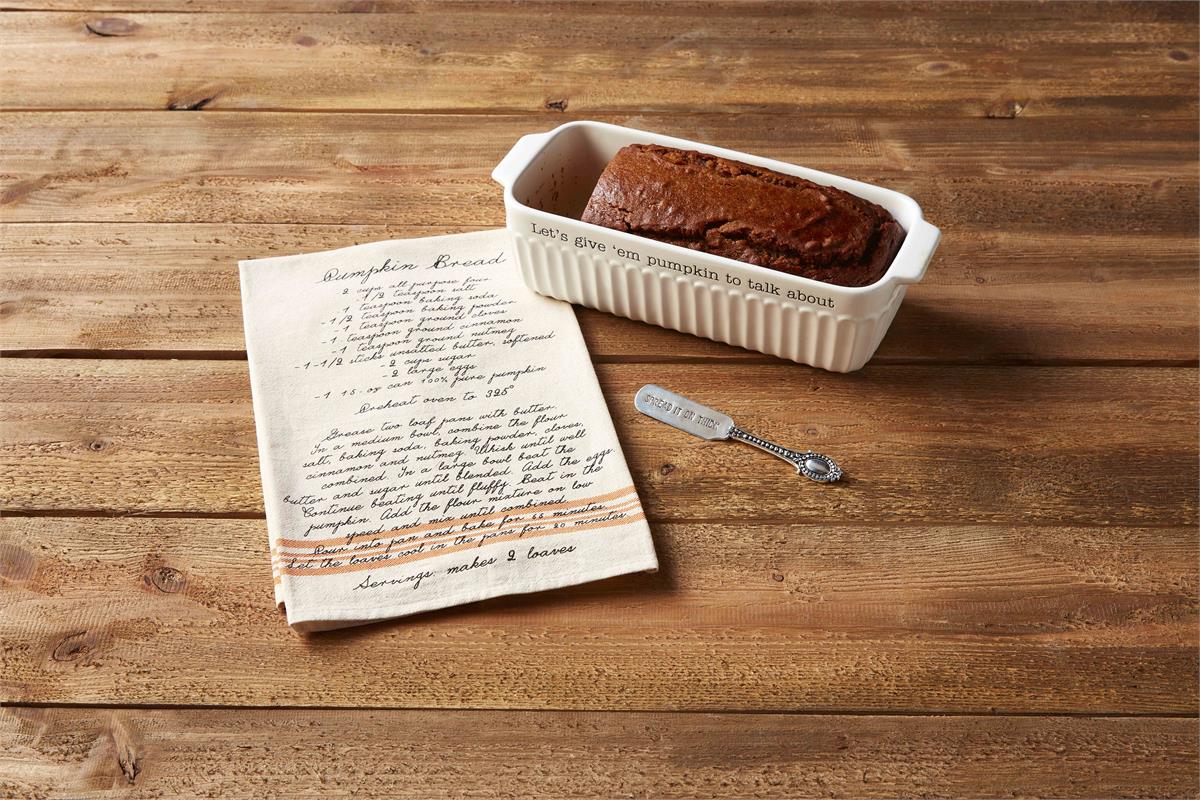 Let's give 'em pumpkin to talk about
Pumpkin Bread
2 cups all purpose four
-1/2 teaspoon salt
1 teaspoon baking soda
-1/2 teaspoon baking powder
-1 teaspoon ground cloves
-1 teaspoon ground cinnamon
-1 teaspoon ground nutmeg
-1-1/2 sticks unsalted butter, softened
-2 cups sugar
-2 large eggs
-1 15-oz can 100% pure pumpkin
Preheat oven to 325°
Grease two loaf pans with butter.
In a medium bowl, combine the flour
salt, baking soda, baking powder, cloves,
cinnamon and nutmeg. Whisk until well
combined. In a large bowl beat the
butter and sugar until blended. Add the eggs.
Continue beating until fluffy. Beat in the
pumpkin. Add the flour mixture on low
speed and mix until combined.
Pour into pan and bake for 65 minutes.
Let the loaves cool in the pans for 20 minutes.
Servings: makes 2 loaves
SPREAD IT ON THICK